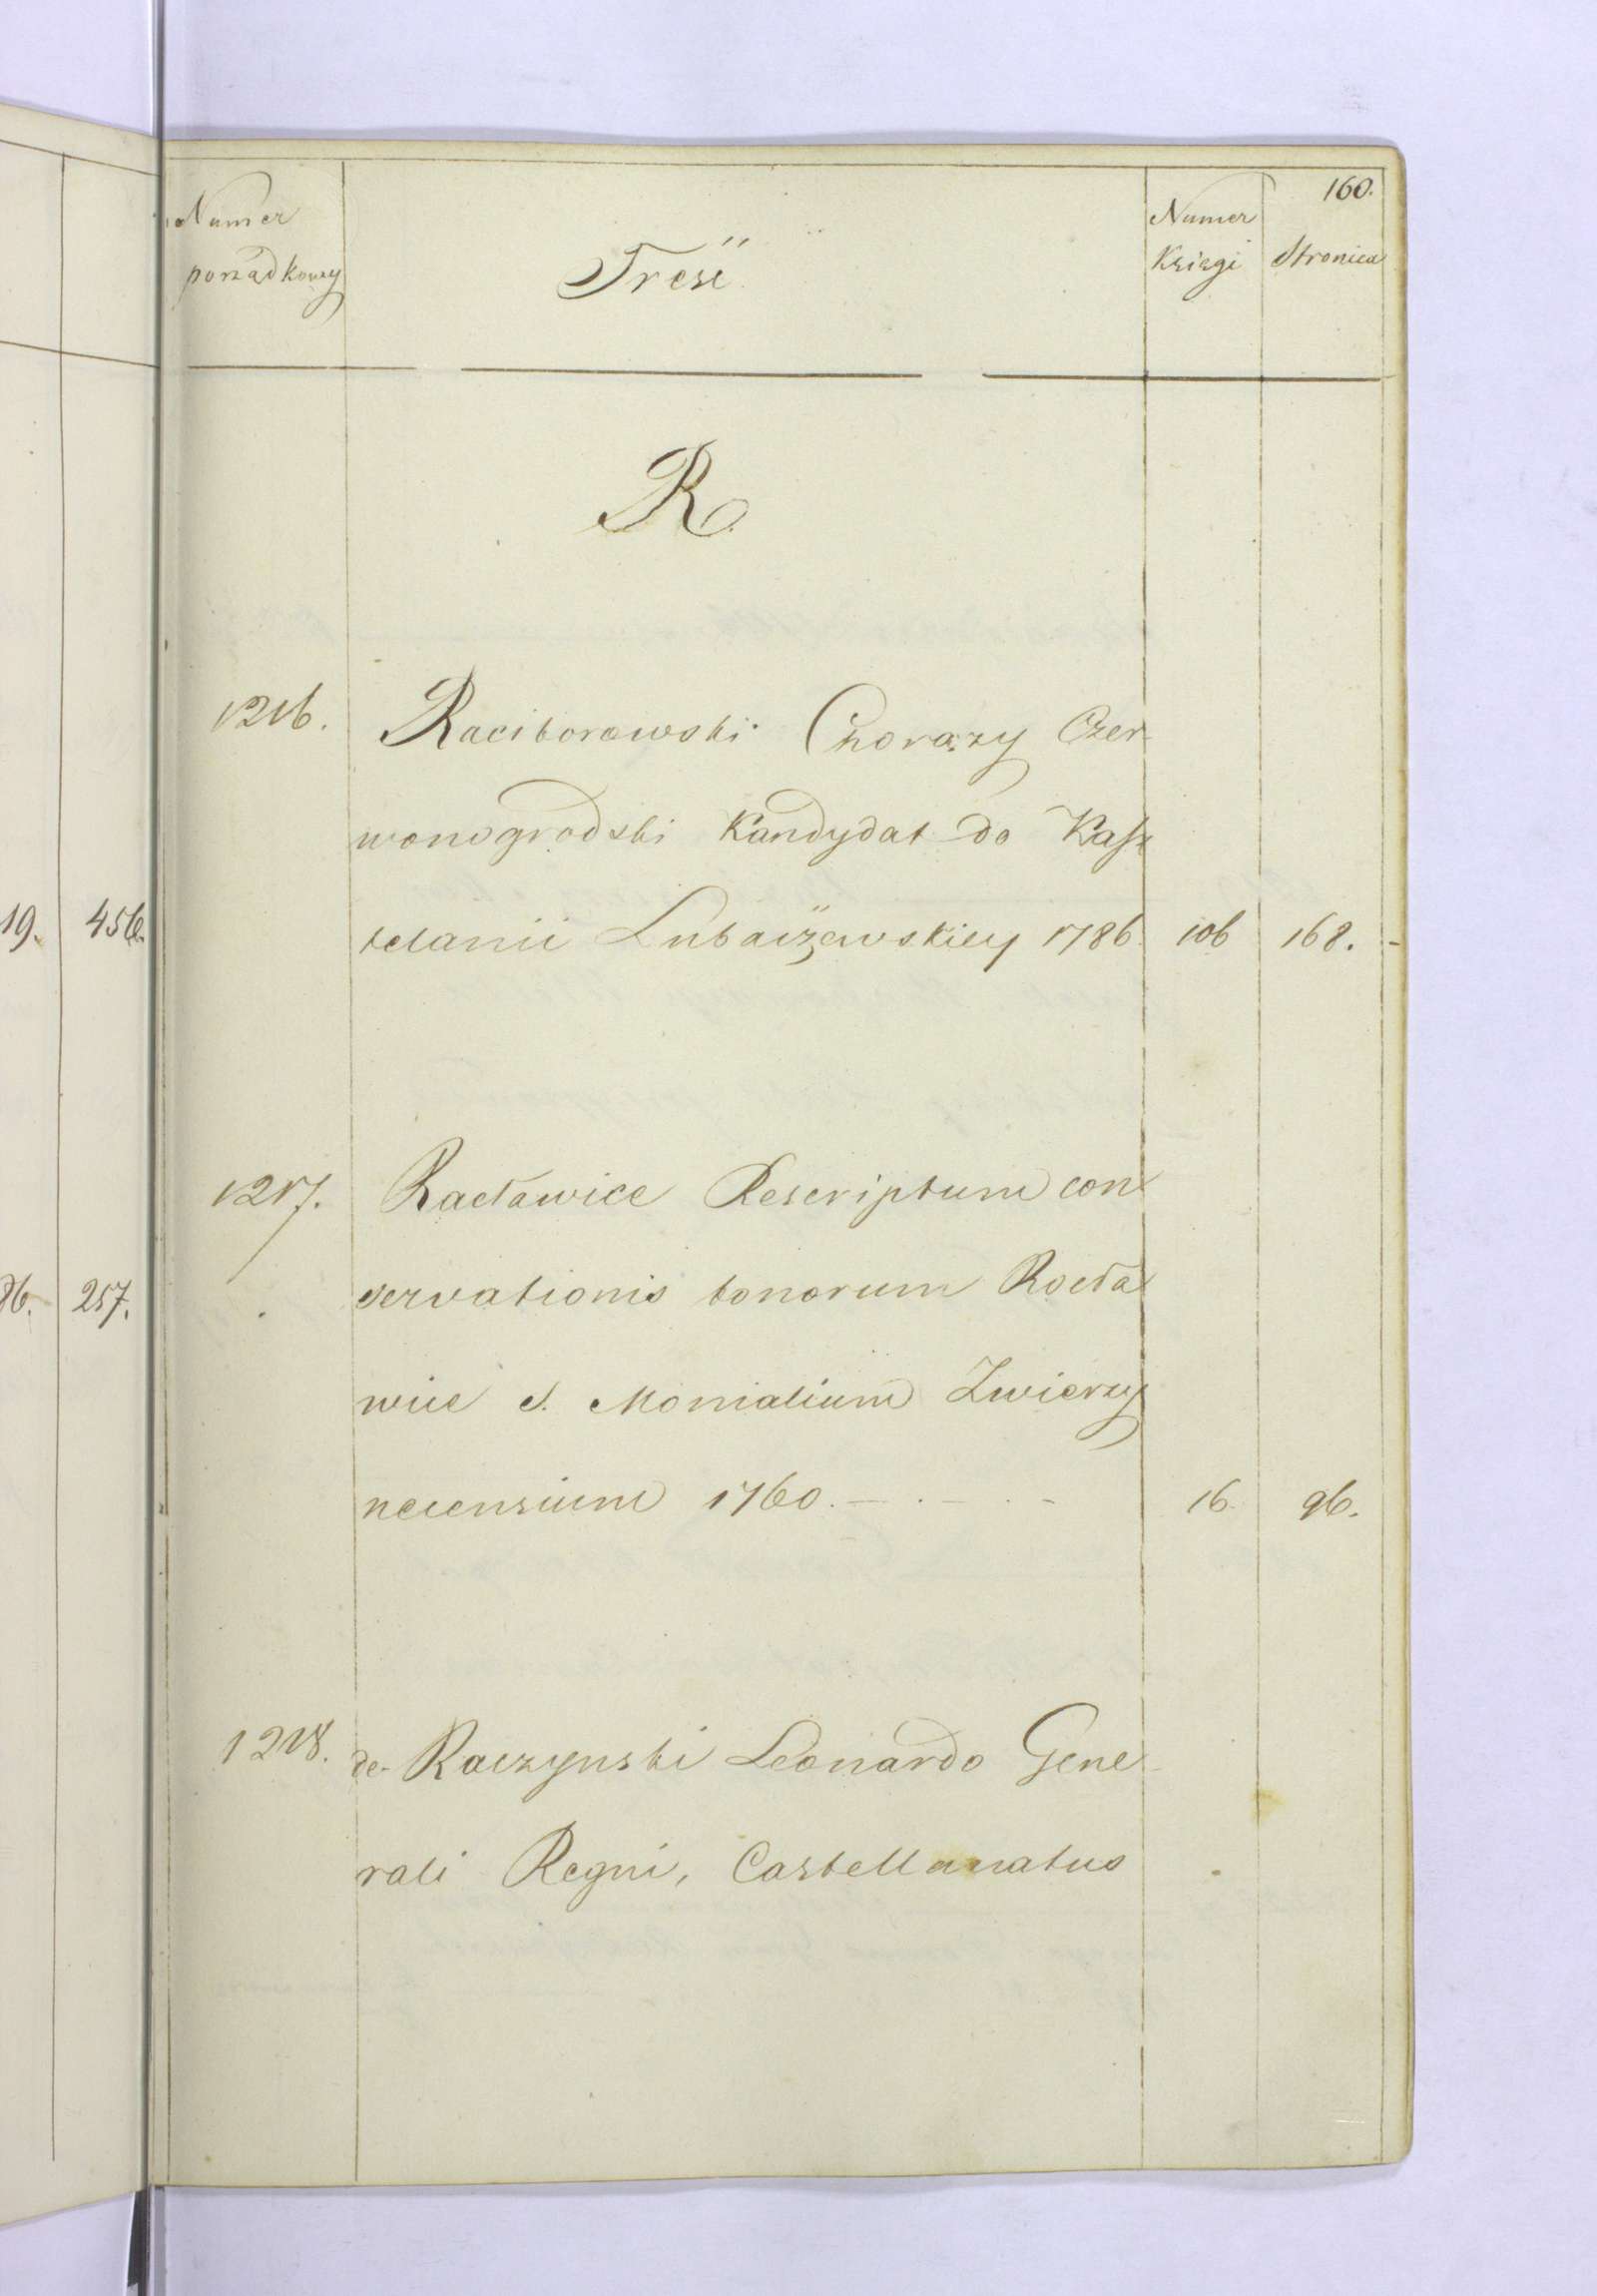 160.
Numer porządkowy
Treść
Numer Księgi
Stronica
R.
1216. Raciborowski Chorąży Czer-
wonogrodzki Kandydat do Kasz
telanii Lubaczewskiey 1786. 106 168.
1217. Racławice Rescriptum con
servationis bonorum Racła
wice S. Monialium Zwierzy
necensium 1760. 16. 96.
1218. de Raczynski Leonardo Gene-
rali Regni, Castellanatus
19. 456.
86. 257.